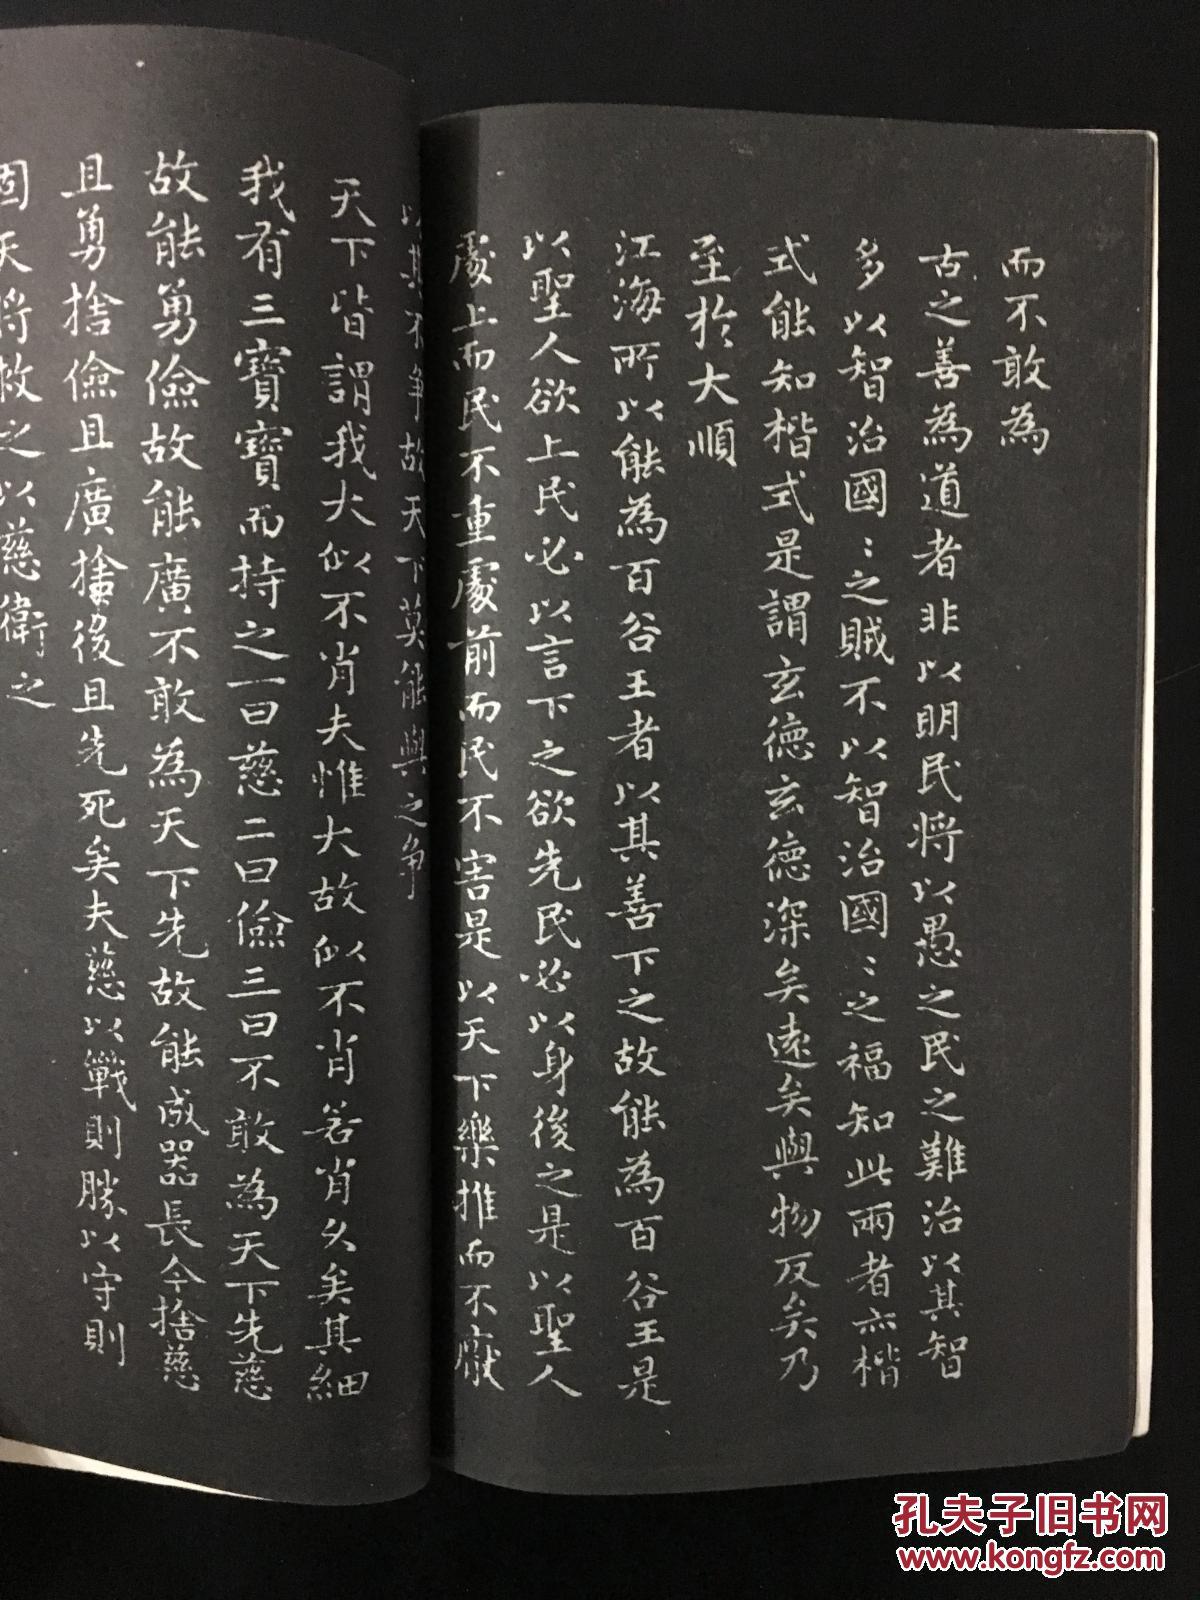 而不敢為
古之善為道者非以明民將以愚之民之難治以其智
多以智治國〻之賊不以智治國〻之福知此兩者亦楷
式能知楷式是謂玄德玄德深矣遠矣與物反矣乃
至於大順
江海所以能為百谷王者以其善下之故能為百谷王是
以聖人欲上民必以言下之欲先民必以身後之是以聖人
處上而民不重處前而民不害是以天下樂推而不厭
以其不爭故天下莫能與之爭
天下皆謂我大似不肖夫惟大故似不肖若肖久矣其細
我有三寶寶而持之一曰慈二曰儉三曰不敢為天下先慈
故能勇儉故能廣不敢為天下先故能成器長今捨慈
且勇捨儉且廣捨後且先死矣夫慈以戰則勝以守則
固天將救之以慈衛之
孔夫子旧书网
www.kongfz.com